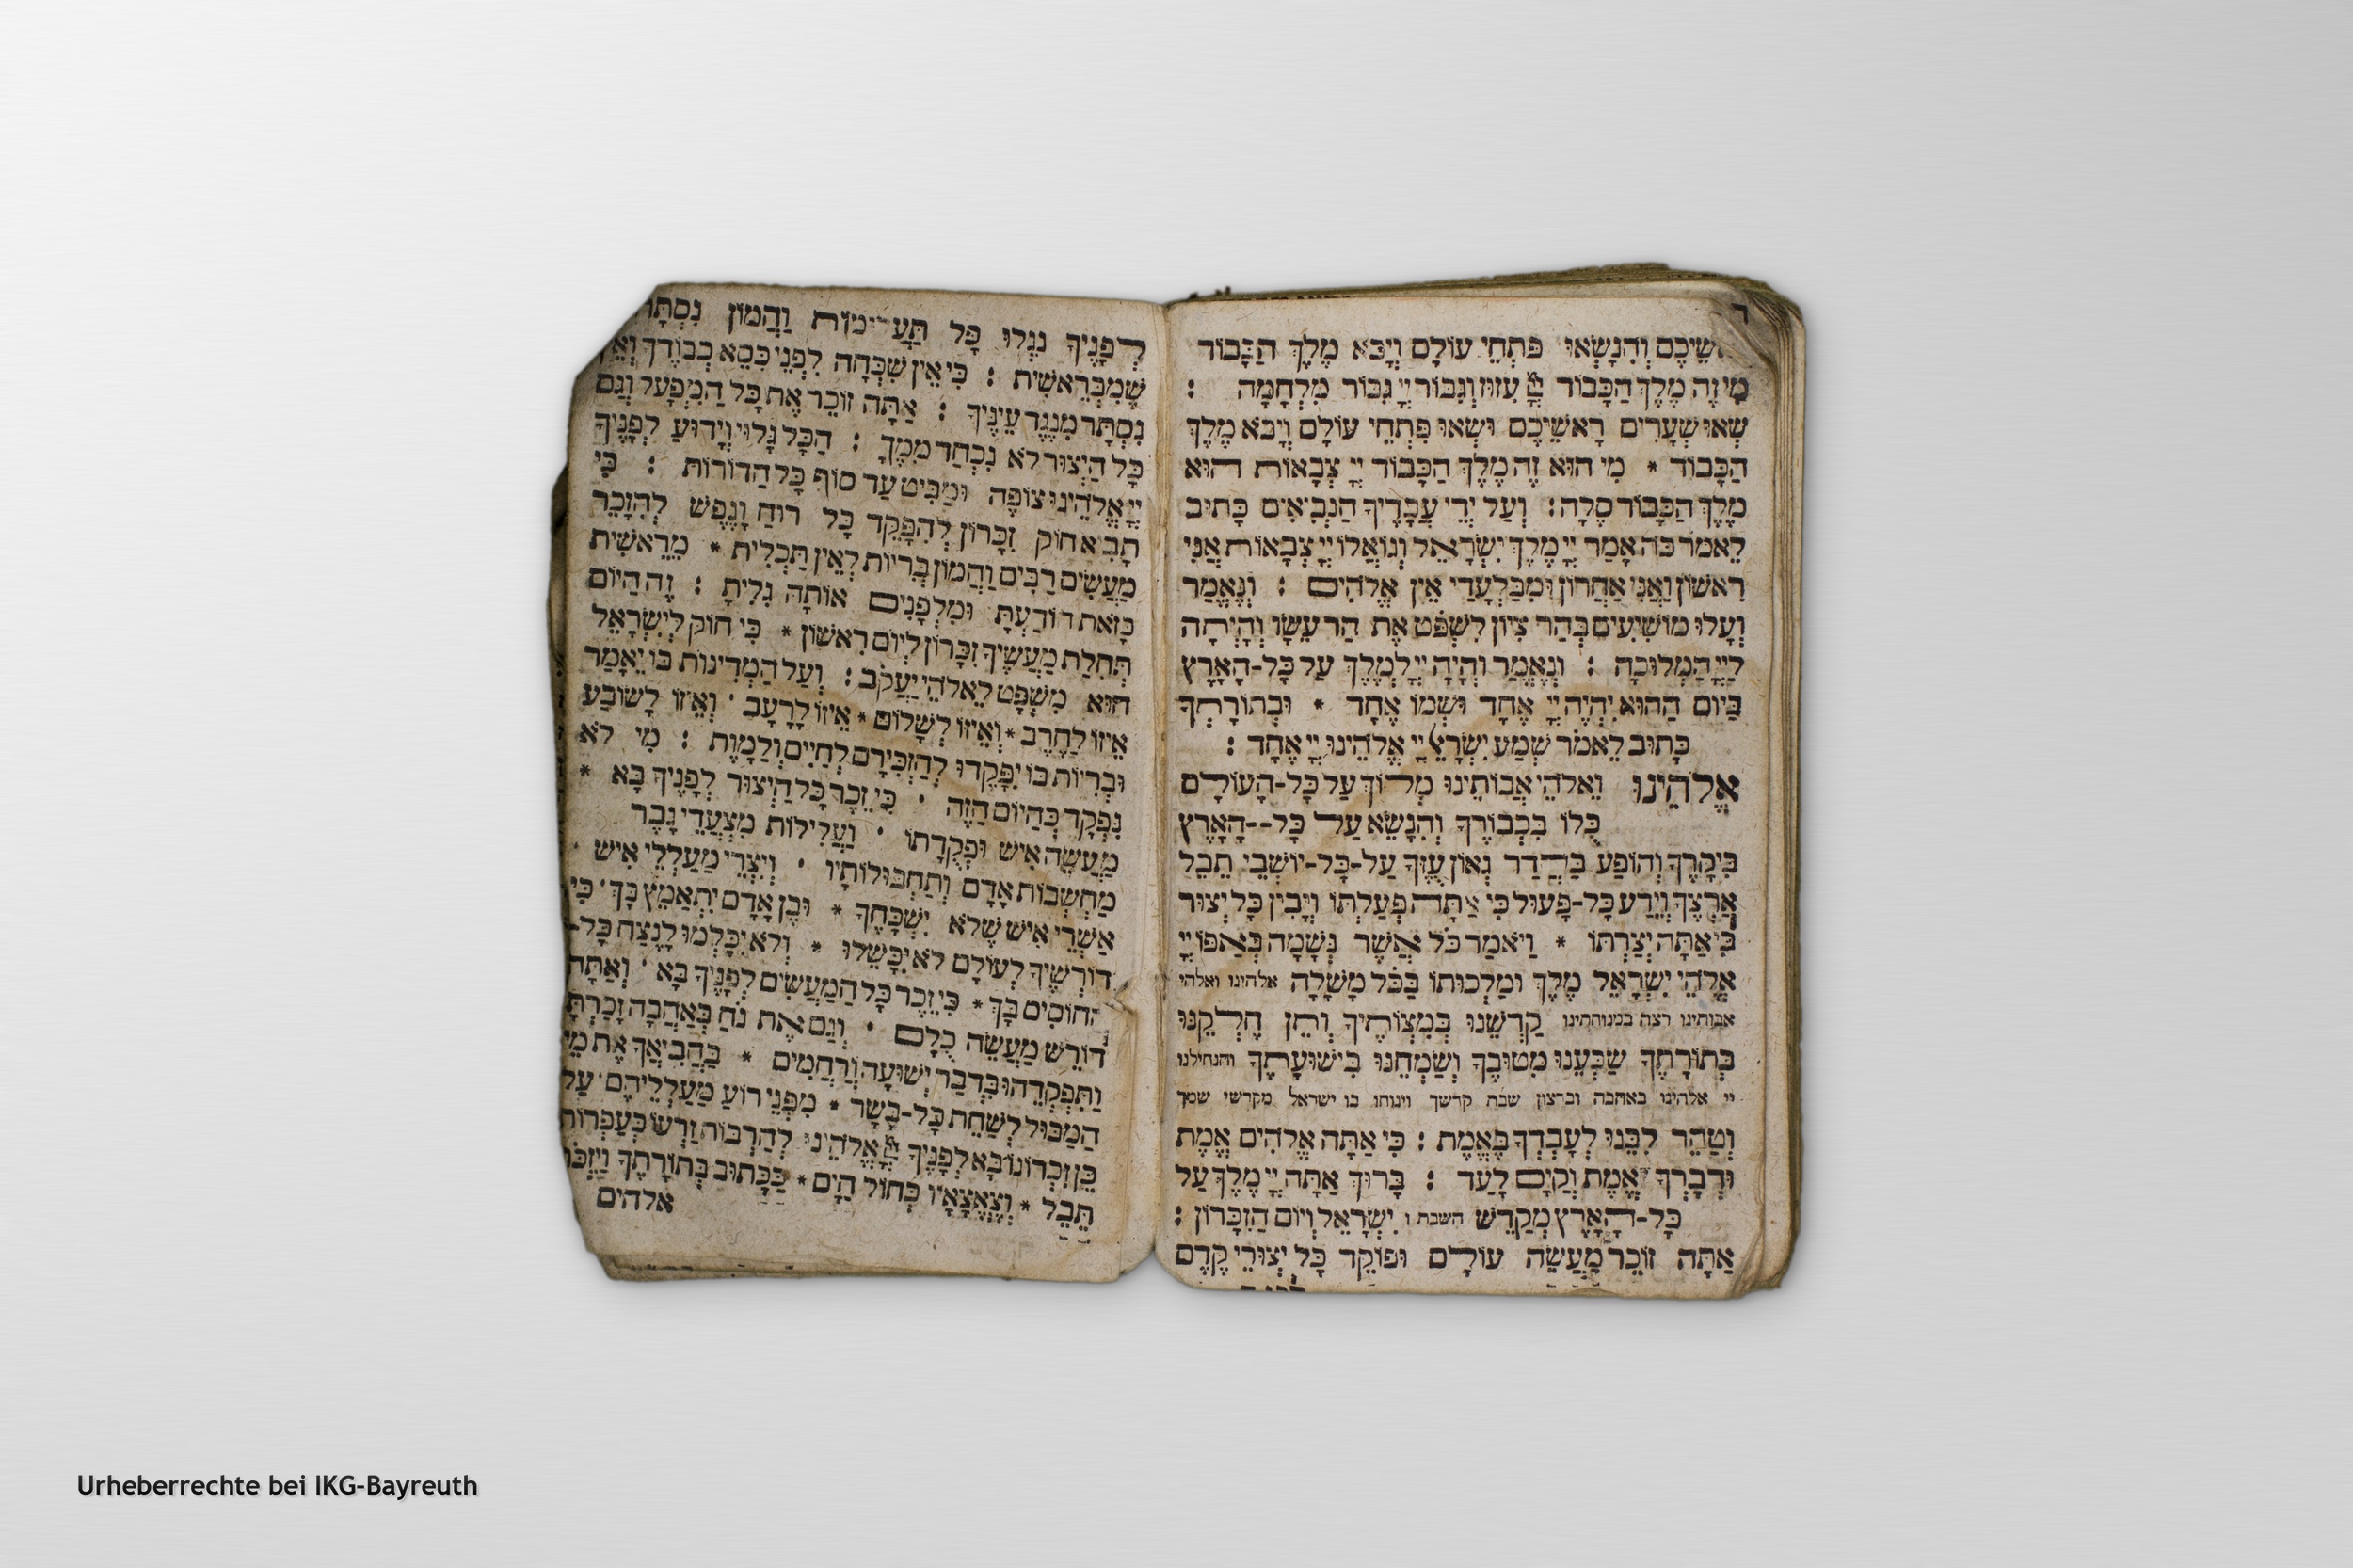 ר
וְהִנָּשְׂאוּ פִּתְחֵי עוֹלָם וְיָבֹא מֶלֶךְ הַכָּבוֹד
מִי זֶה מֶלֶךְ הַכָּבוֹד יְיָ עִזּוּז וְגִבּוֹר יְיָ גִּבּוֹר מִלְחָמָה :
שְׂאוּ שְׁעָרִים רָאשֵׁיכֶם וּשְׂאוּ פִּתְחֵי עוֹלָם וְיָבֹא מֶלֶךְ
הַכָּבוֹד * מִי הוּא זֶה מֶלֶךְ הַכָּבוֹד יְיָ צְבָאוֹת הוּא
מֶלֶךְ הַכָּבוֹד סֶלָה : וְעַל יְדֵי עֲבָדֶיךָ הַנְּבִיאִים כָּתוּב
לֵאמֹר כֹּה אָמַר יְיָ מֶלֶךְ יִשְׂרָאֵל וְגוֹאֲלוֹ יְיָ צְבָאוֹת אֲנִי
רִאשׁוֹן וַאֲנִי אַחֲרוֹן וּמִבַּלְעָדַי אֵין אֱלֹהִים : וְנֶאֱמַר
וְעָלוּ מוֹשִׁיעִים בְּהַר צִיּוֹן לִשְׁפֹּט אֶת הַר עֵשָׂו וְהָיְתָה
לַיְיָ הַמְּלוּכָה : וְנֶאֱמַר וְהָיָה יְיָ לְמֶלֶךְ עַל כָּל-הָאָרֶץ
בַּיּוֹם הַהוּא יִהְיֶה יְיָ אֶחָד וּשְׁמוֹ אֶחָד * וּבְתוֹרָתְךָ
כָּתוּב לֵאמֹר שְׁמַע יִשְׂרָאֵל יְיָ אֱלֹהֵינוּ יְיָ אֶחָד :
אֱלֹהֵינוּ וֵאלֹהֵי אֲבוֹתֵינוּ מְלוֹךְ עַל כָּל-הָעוֹלָם
כֻּלּוֹ בִּכְבוֹדֶךָ וְהִנָּשֵׂא עַל כָּל--הָאָרֶץ
בִּיקָרֶךָ וְהוֹפַע בַּהֲדַר גְּאוֹן עֻזֶּךָ עַל-כָּל-יוֹשְׁבֵי תֵבֵל
אַרְצֶךָ וְיֵדַע כָּל-פָּעוּל כִּי אַתָּה פְּעַלְתּוֹ וְיָבִין כָּל יְצוּר
כִּי אַתָּה יְצַרְתּוֹ * וְיֹאמַר כֹּל אֲשֶׁר נְשָׁמָה בְּאַפּוֹ יְיָ
אֱלֹהֵי יִשְׂרָאֵל מֶלֶךְ וּמַלְכוּתוֹ בַּכֹּל מָשָׁלָה אלהינו ואלהי
אבותינו רצה במנוחתינו קַדְּשֵׁנוּ בְּמִצְוֹתֶיךָ וְתֵן חֶלְקֵנוּ
בְּתוֹרָתֶךָ שַׂבְּעֵנוּ מִטּוּבֶךָ וְשַׂמְּחֵנוּ בִּישׁוּעָתֶךָ והנחילנו
יי אלהינו באהבה וברצון שבת קדשך וינוחו בו ישראל מקדשי שמך
וְטַהֵר לִבֵּנוּ לְעָבְדְּךָ בֶּאֱמֶת : כִּי אַתָּה אֱלֹהִים אֱמֶת
וּדְבָרְךָ אֱמֶת וְקַיָּם לָעַד : בָּרוּךְ אַתָּה יְיָ מֶלֶךְ עַל
כָּל-הָאָרֶץ מְקַדֵּשׁ השבת ו יִשְׂרָאֵל וְיוֹם הַזִּכָּרוֹן :
אַתָּה זוֹכֵר מַעֲשֵׂה עוֹלָם וּפוֹקֵד כָּל יְצוּרֵי קֶדֶם
לְפָנֶיךָ נִגְלוּ כָּל תַּעֲלוּמוֹת וַהֲמוֹן
שֶׁמִּבְּרֵאשִׁית : כִּי אֵין שִׁכְחָה לִפְנֵי כִּסֵּא כְבוֹדֶךָ וְאֵין
נִסְתָּר מִנֶּגֶד עֵינֶיךָ : אַתָּה זוֹכֵר אֶת כָּל הַמִּפְעָל וְגַם
כָּל הַיְצוּר לֹא נִכְחַד מִמֶּךָּ : הַכָּל גָּלוּי וְיָדוּעַ לְפָנֶיךָ
יְיָ אֱלֹהֵינוּ צוֹפֶה וּמַבִּיט עַד סוֹף כָּל הַדּוֹרוֹת : כִּי
תָבִיא חוֹק זִכָּרוֹן לְהִפָּקֵד כָּל רוּחַ וָנֶפֶשׁ לְהִזָּכֵר
מַעֲשִׂים רַבִּים וַהֲמוֹן בְּרִיּוֹת לְאֵין תַּכְלִית * מֵרֵאשִׁית
כָּזֹאת הוֹדַעְתָּ וּמִלְּפָנִים אוֹתָהּ גִּלִּיתָ : זֶה הַיּוֹם
תְּחִלַּת מַעֲשֶׂיךָ זִכָּרוֹן לְיוֹם רִאשׁוֹן * כִּי חוֹק לְיִשְׂרָאֵל
הוּא מִשְׁפָּט לֵאלֹהֵי יַעֲקֹב : וְעַל הַמְּדִינוֹת בּוֹ יֵאָמֵר
אֵיזוֹ לַחֶרֶב * וְאֵיזוֹ לְשָׁלוֹם * אֵיזוֹ לָרָעָב ' וְאֵיזוֹ לָשׂוֹבַע
וּבְרִיּוֹת בּוֹ יִפָּקֵדוּ לְהַזְכִּירָם לְחַיִּים וְלַמָּוֶת : מִי לֹא
נִפְקַד כְּהַיּוֹם הַזֶּה ' כִּי זֵכֶר כָּל הַיְצוּר לְפָנֶיךָ בָּא *
מַעֲשֵׂה אִישׁ וּפְקֻדָּתוֹ ' וַעֲלִילוֹת מִצְעֲדֵי גָבֶר
מַחְשְׁבוֹת אָדָם וְתַחְבּוּלוֹתָיו ' וְיִצְרֵי מַעַלְלֵי אִישׁ '
אַשְׁרֵי אִישׁ שֶׁלֹּא יִשְׁכָּחֶךָ * וּבֶן אָדָם יִתְאַמֵּץ בָּךְ ' כִּי
דוֹרְשֶׁיךָ לְעוֹלָם לֹא יִכָּשֵׁלוּ * וְלֹא יִכָּלְמוּ לָנֶצַח כָּל-
הַחוֹסִים בָּךְ * כִּי זֵכֶר כָּל הַמַּעֲשִׂים לְפָנֶיךָ בָּא ' וְאַתָּה
דוֹרֵשׁ מַעֲשֵׂה כֻלָּם ' וְגַם אֶת נֹחַ בְּאַהֲבָה זָכַרְתָּ
וַתִּפְקְדֵהוּ בִּדְבַר יְשׁוּעָה וְרַחֲמִים * בַּהֲבִיאֲךָ אֶת מֵי
הַמַּבּוּל לְשַׁחֵת כָּל-בָּשָׂר * מִפְּנֵי רוֹעַ מַעַלְלֵיהֶם ' עַל
כֵּן זִכְרוֹנוֹ בָּא לְפָנֶיךָ יְיָ אֱלֹהֵינוּ לְהַרְבּוֹת זַרְעוֹ כְּעַפְרוֹת
תֵּבֵל * וְצֶאֱצָאָיו כְּחוֹל הַיָּם * כַּכָּתוּב בְּתוֹרָתֶךָ וַיִּזְכֹּר
אלהים
Urheberrechte bei IKG-Bayreuth